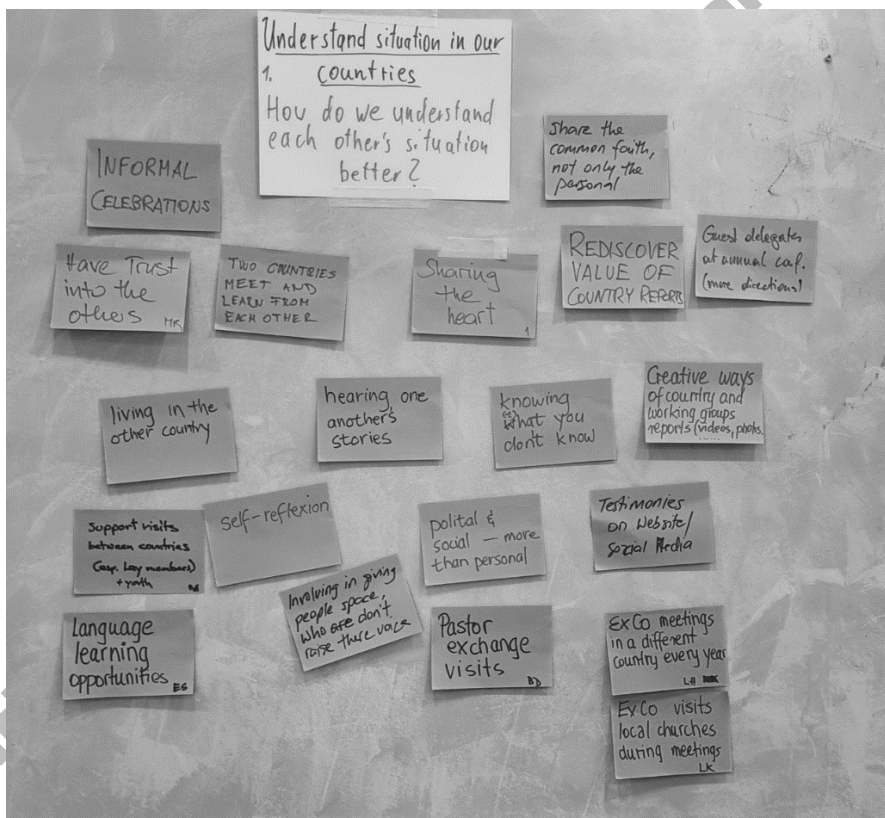 Understand situation in our
1. countries
How do we understand
each other's situation
better?
Share the
common faith,
not only the
personal
INFORMAL
CELEBRATIONS
Have Trust
into the
others
MK
TWO COUNTRIES
MEET AND
LEARN FROM
EACH OTHER
Sharing
the
heart
1
REDISCOVER
VALUE OF
COUNTRY REPORTS
Guest delegates
at annual conf.
(more directions)
living in the
other country
hearing one
another's
stories
knowing
what you
don't know
Creative ways
of country and
working groups
reports (videos, photos,
......
Support visits
between countries
(esp. Lay members)
+ youth
self-reflexion
polital &
social — more
than personal
Testimonies
on Website/
Social Media
Language
learning
opportunities
ES
Involving in giving
people space,
who don't
raise there voice
Pastor
exchange
visits
BD
ExCo meetings
in a different
country every year
LH
ExCo visits
local churches
during meetings
LK